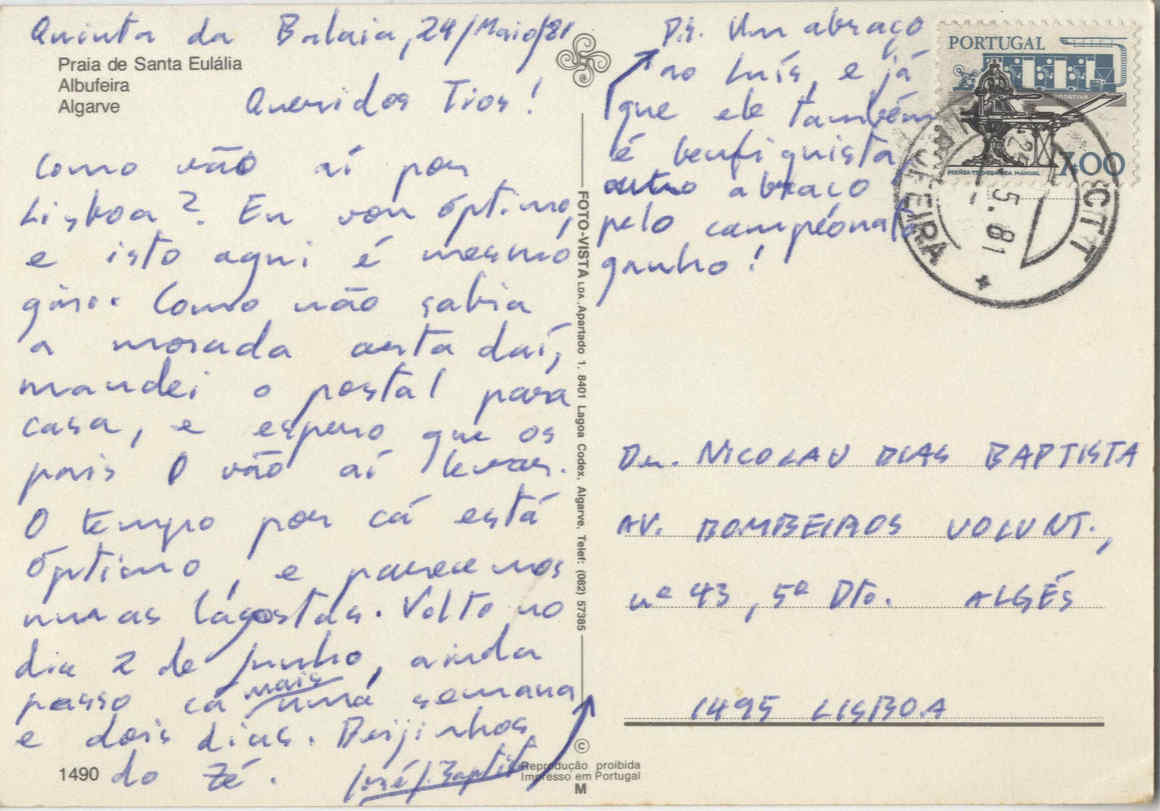 Quinta da Balaia, 24/Maio/81
Praia de Santa Eulália
Albufeira
Algarve
Queridos Tios!
Como vão aí por
Lisboa? Eu vou óptimo,
e isto aqui é mesmo
giro. Como não sabia
a morada certa daí,
mandei o postal para
casa, e espero que os
pais o vão aí levar.
O tempo por cá está
óptimo, e parecemos
numas lagostas. Volto no
dia 2 de Junho, ainda
passo cá mais uma semana
e dois dias. Beijinhos
do Zé. José J. Baptista
1490
FOTO-VISTA LDA. Apartado 1. 8401 Lagoa Codex. Algarve. Telef: (082) 57385
©
Reprodução proibida
Impresso em Portugal
M
P.S. Um abraço
ao Luís, e já
que ele também
é benfiquista
outro abraço
pelo campeonato
ganho!
PORTUGAL
7.00
CTT
5.81
ALBUFEIRA
Dr. NICOLAU DIAS BAPTISTA
AV. BOMBEIROS VOLUNT.,
nº 43, 5º Dto. ALGÉS
1495 LISBOA